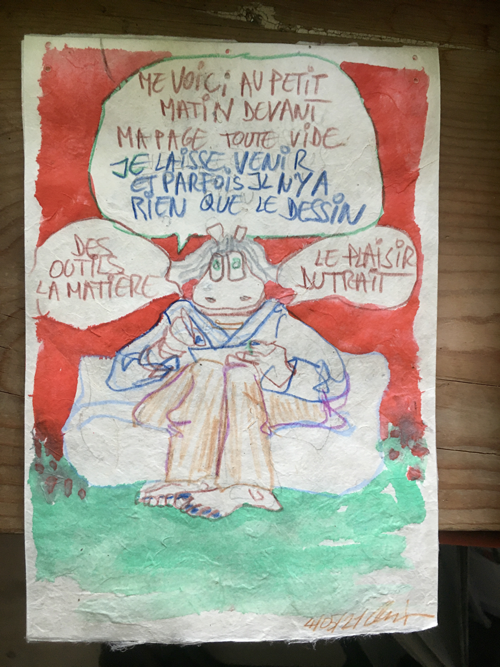 ME VOICI AU PETIT
MATIN DEVANT
MA PAGE TOUTE VIDE
JE LAISSE VENIR
ET PARFOIS IL N'Y A
RIEN QUE LE DESSIN
DES
OUTILS
LA MATIÈRE
LE PLAISIR
DU TRAIT
4/05/21